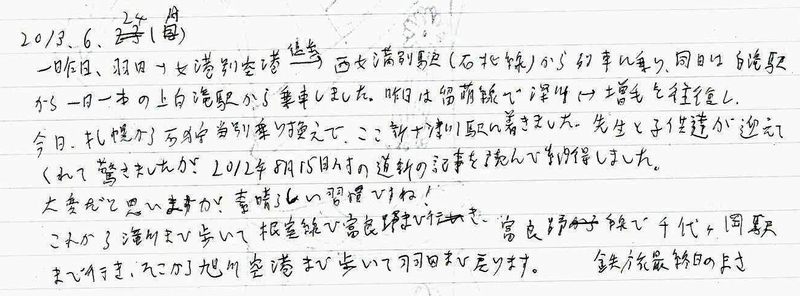 2013.6.24(月)
一昨日、羽田→女満別空港 徒歩→ 西女満別駅(石北線)から列車に乗り、同日は白滝駅
から一日一本の上白滝駅から乗車しました。昨日は留萌線で深川↔増毛を往復し、
今日、札幌から石狩当別乗り換えで、ここ新十津川駅に着きました。先生と子供達が迎えて
くれて驚きましたが、2012年8月15日付の道新の記事を読んで納得しました。
大変だと思いますが、素晴らしい習慣ですね!
これから滝川まで歩いて根室線で富良野まで行き、富良野線で千代ヶ岡駅
まで行き、そこから旭川空港まで歩いて羽田まで戻ります。 鉄旅最終日の